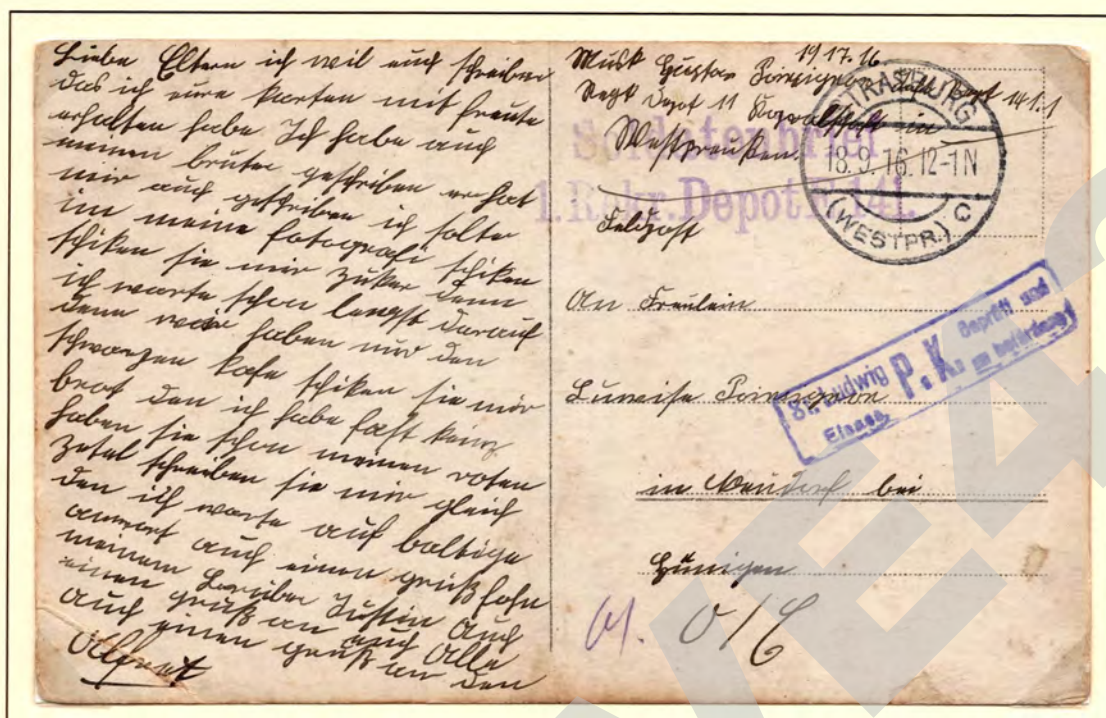 Liebe Eltern ich wil euch schreiben
das ich eure karten mit freute
erhalten habe Ich habe auch
meinen bruter geschriben er hat
mir auch geschriben ich solte
im meine fotografi schiken
schiken sie mir zuker denn
ich warte schon langst darauf
denn wir haben nur den
schwarzen kafe schiken sie mir
brot den ich habe fast keins
haben sie schon meinen roten
zetel schreiben sie mir gleich
den ich warte auf baltige
antwort auch einen gruß
meinem Justin auch
einen gruß an euch Alle
auch einen gruß an den
Alfret
Musk Gustav
Regt Depot 11 in
Westpreußen
Soldatenbrief
1. Rekr. Depot E 141.
Feldpost
STRASBURG
18.9.16.12-1N
(WESTPR.) C
An Freulein
Luweise
St. Ludwig P.K. Geprüft und
Elsass zu befördern
in Neudorf bei
Hünigen